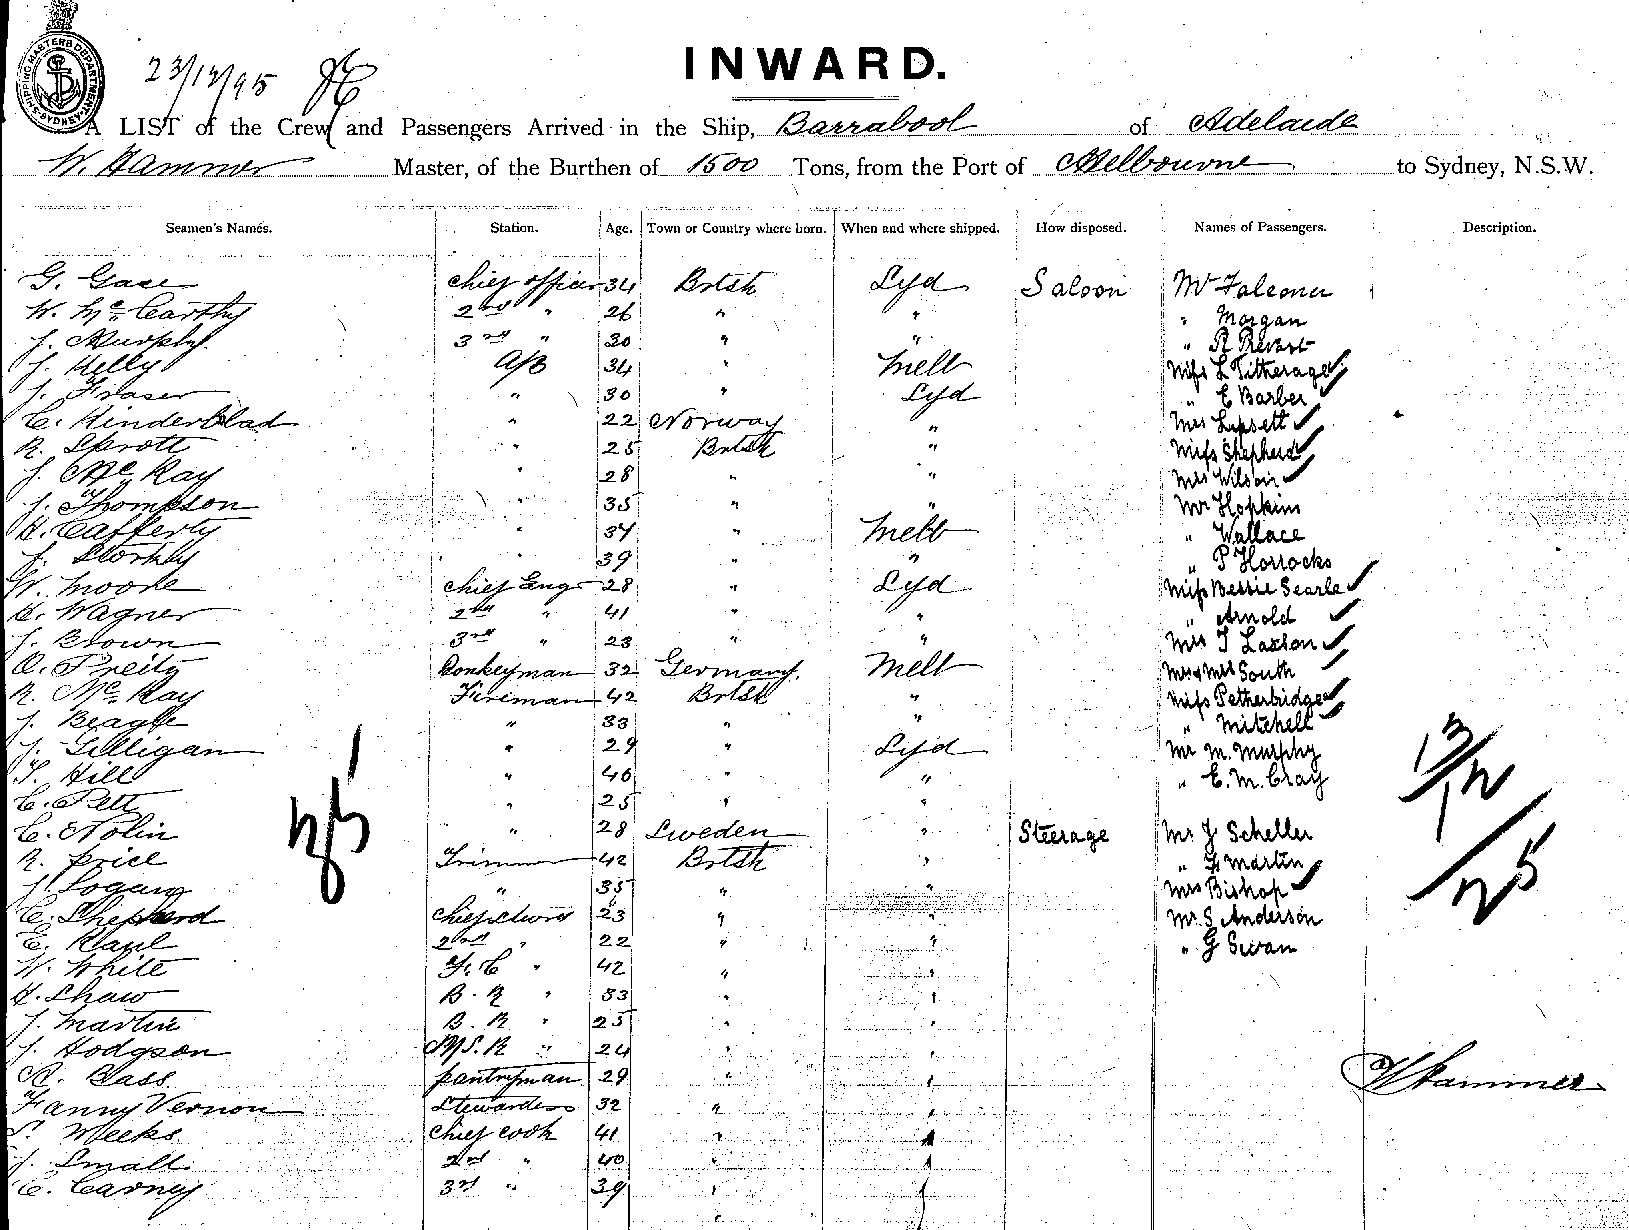 SHIPPING MASTERS DEPARTMENT SYDNEY
23/12/95
INWARD.
A LIST of the Crew and Passengers Arrived in the Ship, Barrabool of Adelaide
W. Hammer Master, of the Burthen of 1500 Tons, from the Port of Melbourne to Sydney, N.S.W.
Seamen's Names. Station. Age. Town or Country where born. When and where shipped. How disposed. Names of Passengers. Description.
G. Gase chief officer 34 Brtsh Syd Saloon Mr Falconer
W. McCarthy 2nd " 26 " " " Morgan
J. Murphy 3rd " 30 " " " R
J. Kelly A/B 34 " Melb Miss L Titherage
J. Fraser " 30 " Syd " E Barber
C. Kinderblad " 22 Norway " Mrs Lipsett
R. Sprott " 25 Brtsh " Miss Shepherd
J. McKay " 28 " " Mrs Wilson
J. Thompson " 35 " " Mr Hopkins
H. Cafferty " 34 " Melb " Wallace
J. Storkey " 39 " " " P Horrocks
W. Moore chief Engr 28 " Syd Miss Bessie Searle
H. Wagner 2nd " 41 " " " Arnold
J. Brown 3rd " 23 " " Mrs T Laxton
O. Preitz Donkeyman 32 Germany. Melb Mr & Mrs South
R. McKay Fireman 42 Brtsh " Miss Petherbridge
J. Beagle " 33 " " " Mitchell
J. Gilligan " 29 " Syd Mr M. Murphy
T. Hill " 40 " " " C. M. Cray
C. Pett " 25 " "
C. Nolin " 28 Sweden " Steerage Mr J Scheller
R. Price Trimmer 42 Brtsh " " F Martin
J. Logan " 35 " " Mrs Bishop
C. Shepherd chief stwrd 23 " " Mr S Anderson
E. Paul 2nd " 22 " " " G Swan
W. White F. C " 42 " "
H. Shaw B. R " 33 " "
J. Martin B. R " 25 " "
J. Hodgson M/S. R " 24 " "
R. Bass. pantryman 29 " "
Fanny Vernon Stewardess 32 " "
S. Meeks chief cook 41 " "
J. Small 2nd " 40 " "
C. Carney 3rd " 39 " "
13/12
/25
W Hammer